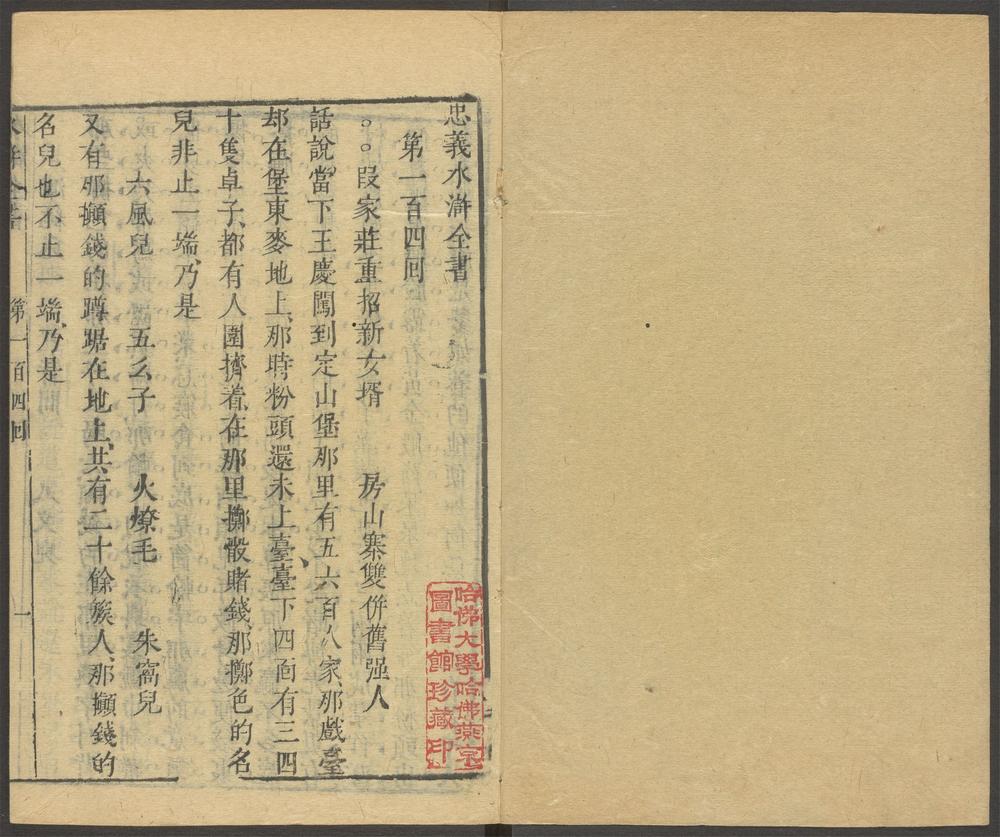 忠義水滸全書
第一百四回
。。段家莊重招新女壻　房山寨雙併舊强人
話說當下王慶闖到定山堡那里有五六百人家、那戲臺
却在堡東麥地上、那時粉頭還未上臺、臺下四面有三四
十隻卓子、都有人圍擠着、在那里擲骰賭錢、那擲色的名
兒非止一端、乃是
六風兒　五么子　火燎毛　朱窩兒
又有那攧錢的蹲踞在地上、共有二十餘簇人、那攧錢的
名兒也不止一端、乃是
第一百四回　一
哈佛大學哈佛燕京
圖書館珍藏印